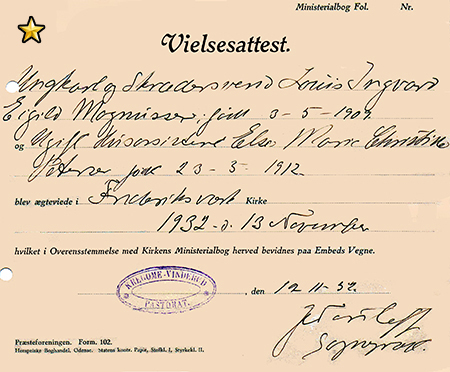 Ministerialbog Fol. Nr.
Vielsesattest.
Ungkarl og Skrædersvend Louis Ingvard
Eigild Magnussen, født 3-5-1909
og Ugift Else Marie Christine
Petersen født 23-5-1912.
blev ægteviede i Frederiksværk Kirke
1932 d. 13 November
hvilket i Overensstemmelse med Kirkens Ministerialbog herved bevidnes paa Embeds Vegne.
KREGOME-VINDERØD
PASTORAT.
, den 12-11-32.
Sognepræst
Præsteforeningen. Form. 102.
Himmerlandske Boghandel. Odense. Statens kontr. Papir, Stofkl. I, Styrkekl. II.